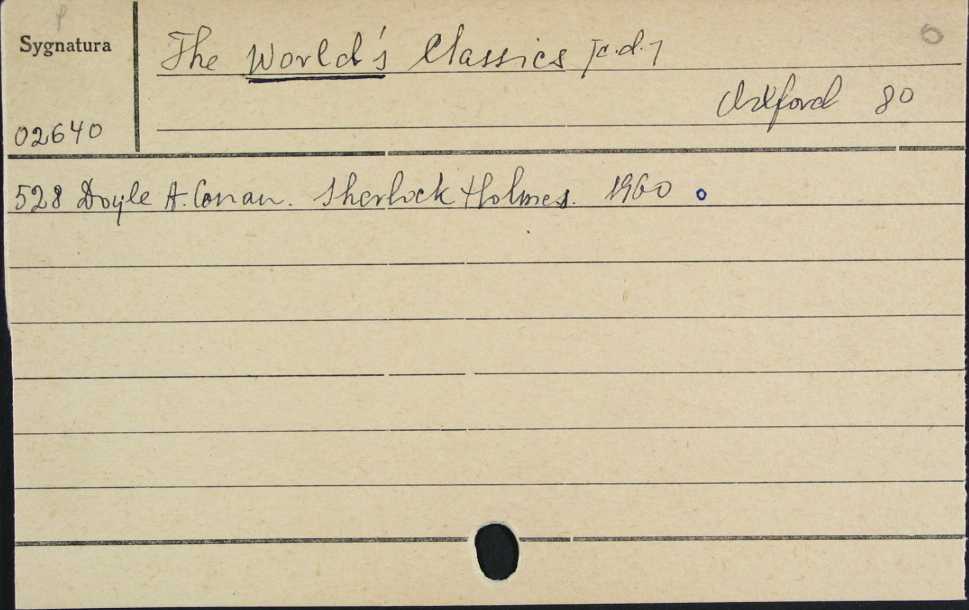 Sygnatura
The World's Classics [c.d.]
Oxford 80
02640
528 Doyle A. Conan. Sherlock Holmes. 1960